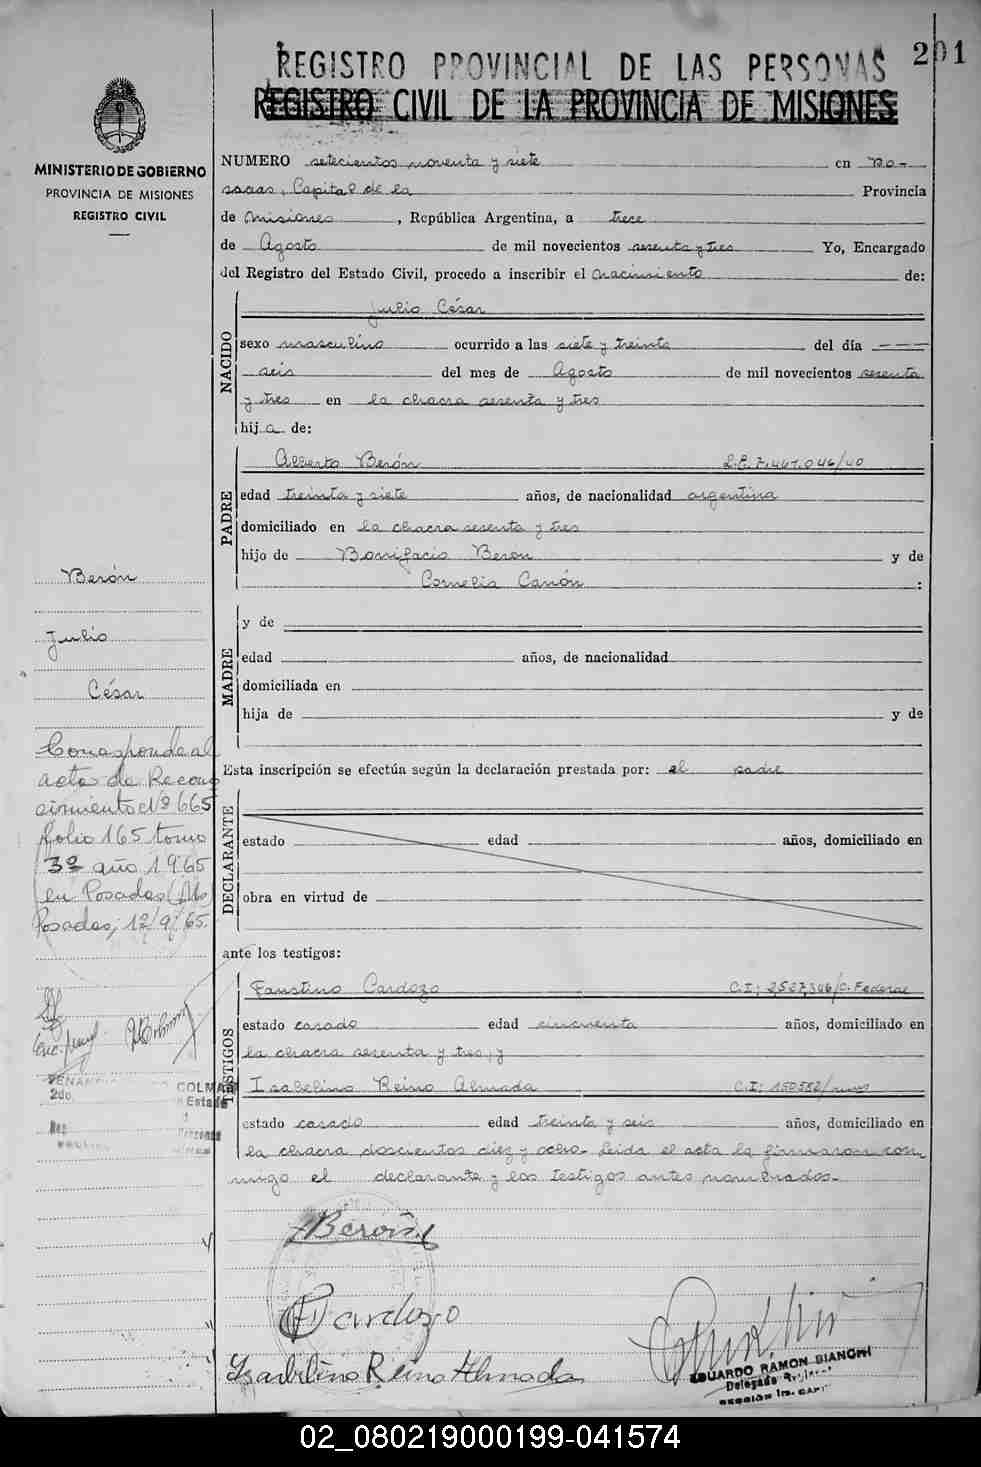 201
REGISTRO PROVINCIAL DE LAS PERSONAS
REGISTRO CIVIL DE LA PROVINCIA DE MISIONES
MINISTERIO DE GOBIERNO
PROVINCIA DE MISIONES
REGISTRO CIVIL
NUMERO setecientos noventa y siete en Po-
sadas, Capital de la Provincia
de Misiones, República Argentina, a trece
de Agosto de mil novecientos sesenta y tres Yo, Encargado
del Registro del Estado Civil, procedo a inscribir el nacimiento de:
NACIDO
Julio César
sexo masculino ocurrido a las siete y treinta del día ---
seis del mes de Agosto de mil novecientos sesenta
y tres en la chacra sesenta y tres
hij o de:
PADRE
Alberto Berón L.E. 7.461.046/40
edad treinta y siete años, de nacionalidad argentina
domiciliado en la chacra sesenta y tres
hijo de Bonifacio Beron y de
Cornelia Carrón :
MADRE
y de
edad años, de nacionalidad
domiciliada en
hija de y de
Esta inscripción se efectúa según la declaración prestada por: el padre
DECLARANTE
estado edad años, domiciliado en
obra en virtud de
ante los testigos:
TESTIGOS
Faustino Cardozo C.I: 2527,306/C. Federal
estado casado edad cincuenta años, domiciliado en
la chacra sesenta y tres, y
Isabelino Reino Almada C.I: 150582/mnes
estado casado edad treinta y seis años, domiciliado en
la chacra doscientos diez y ocho. Leida el acta la firmaron con-
migo el declarante y los testigos antes nombrados.-
Berón
Cardozo
Isabelino Reino Almada
EDUARDO RAMON BIANCHI
Delegado
Berón
Julio
César
Corresponde al
acta de Recono
cimiento Nº 665
folio 165 tomo
3º año 1965
en Posadas (Ms)
Posadas, 12/9/65.
2do.
COLMAN
Estado
02_080219000199-041574